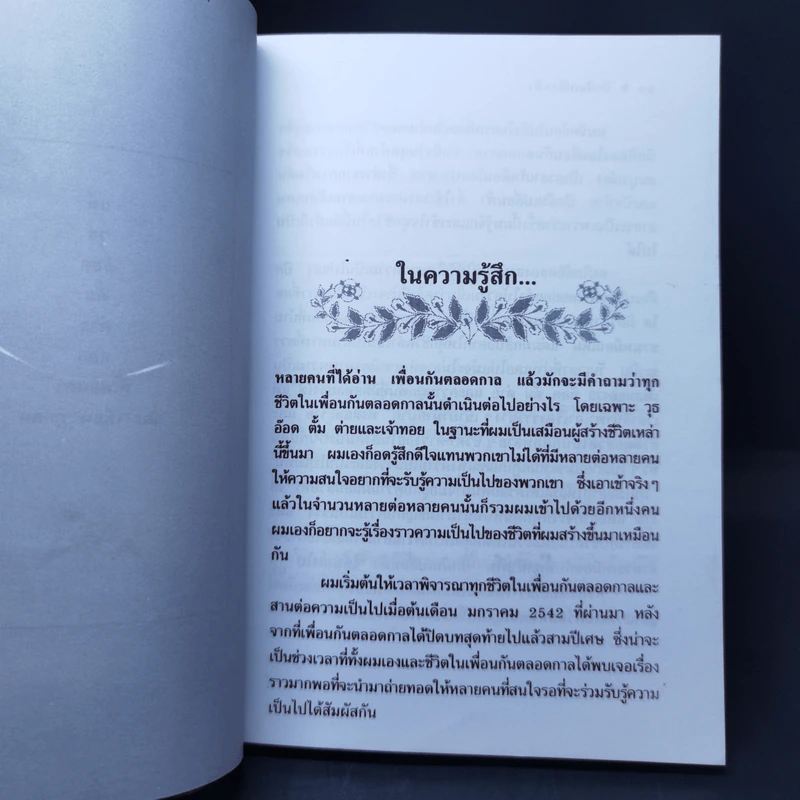 ในความรู้สึก...
หลายคนที่ได้อ่าน เพื่อนกันตลอดกาล แล้วมักจะมีคำถามว่าทุก
ชีวิตในเพื่อนกันตลอดกาลนั้นดำเนินต่อไปอย่างไร โดยเฉพาะ วุธ
อ๊อด ตั้ม ต่ายและเจ้าทอย ในฐานะที่ผมเป็นเสมือนผู้สร้างชีวิตเหล่า
นี้ขึ้นมา ผมเองก็อดรู้สึกดีใจแทนพวกเขาไม่ได้ที่มีหลายต่อหลายคน
ให้ความสนใจอยากที่จะรับรู้ความเป็นไปของพวกเขา ซึ่งเอาเข้าจริงๆ
แล้วในจำนวนหลายต่อหลายคนนั้นก็รวมผมเข้าไปด้วยอีกหนึ่งคน
ผมเองก็อยากจะรู้เรื่องราวความเป็นไปของชีวิตที่ผมสร้างขึ้นมาเหมือน
กัน
ผมเริ่มต้นให้เวลาพิจารณาทุกชีวิตในเพื่อนกันตลอดกาลและ
สานต่อความเป็นไปเมื่อต้นเดือน มกราคม 2542 ที่ผ่านมา หลัง
จากที่เพื่อนกันตลอดกาลได้ปิดบทสุดท้ายไปแล้วสามปีเศษ ซึ่งน่าจะ
เป็นช่วงเวลาที่ทั้งผมเองและชีวิตในเพื่อนกันตลอดกาลได้พบเจอเรื่อง
ราวมากพอที่จะนำมาถ่ายทอดให้หลายคนที่สนใจรอที่จะร่วมรับรู้ความ
เป็นไปได้สัมผัสกัน